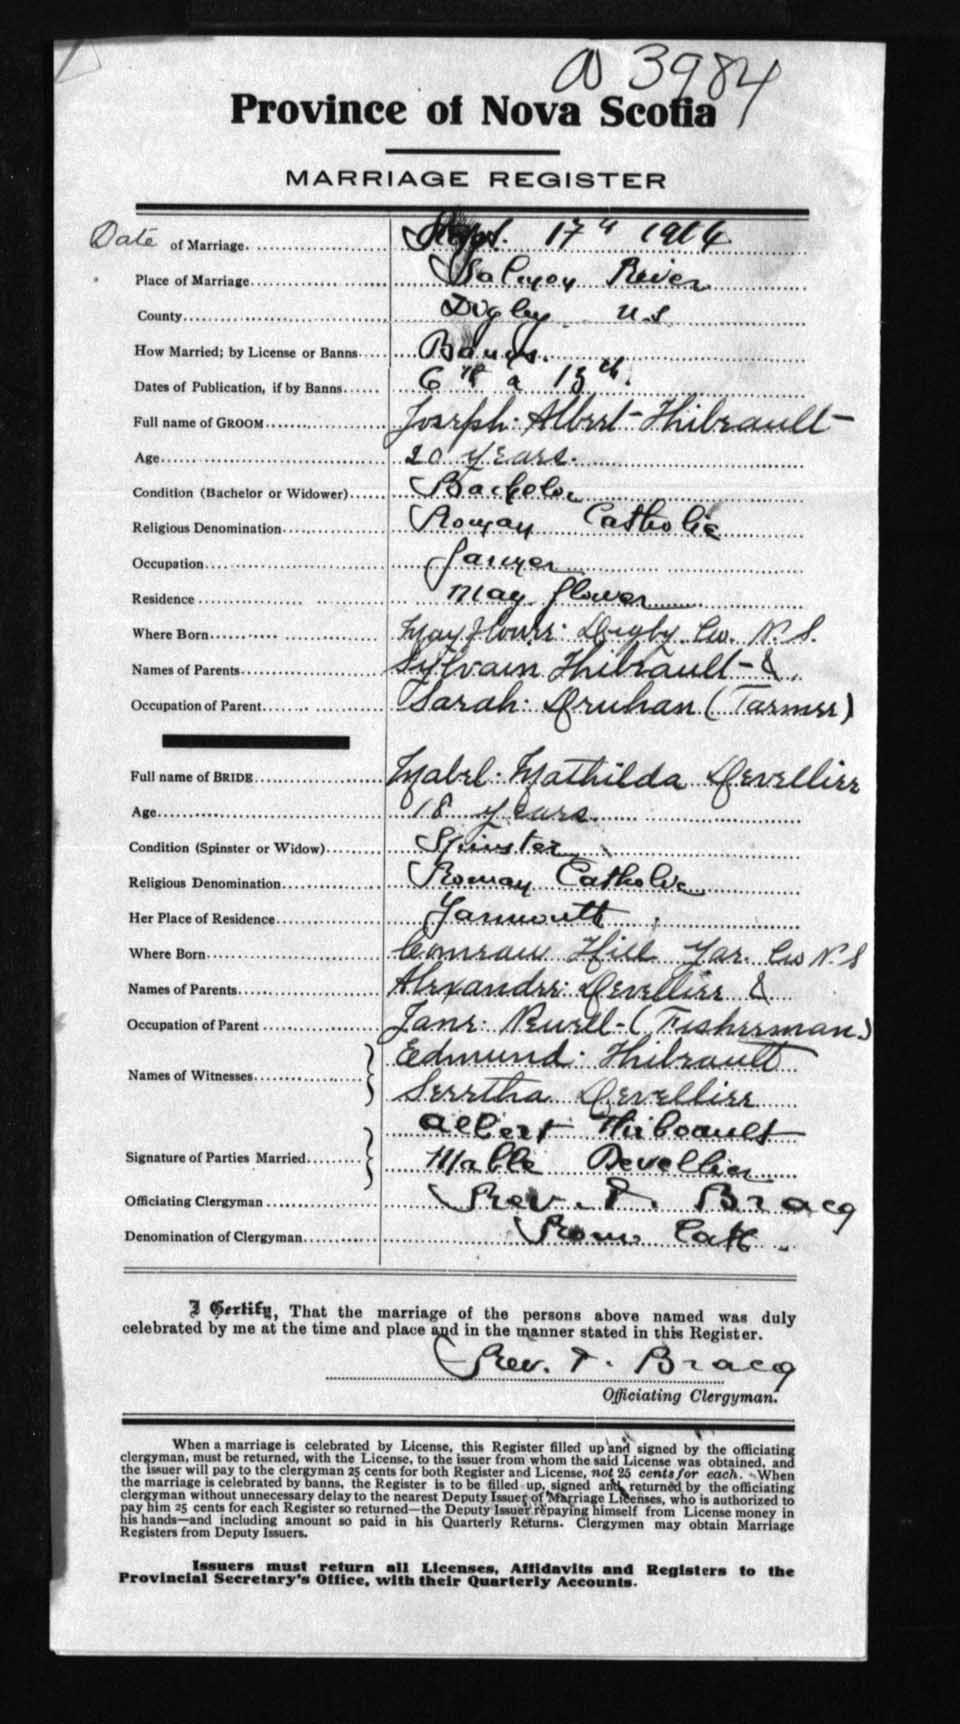 3984
Province of Nova Scotia
MARRIAGE REGISTER
Date of Marriage. Sept. 17th 1914
Place of Marriage Salmon River
County Digby N.S.
How Married; by License or Banns Banns.
Dates of Publication, if by Banns 6th & 13th.
Full name of GROOM Joseph Albert Thibeault
Age 20 years.
Condition (Bachelor or Widower) Bachelor
Religious Denomination Roman Catholic
Occupation
Residence Mayflower
Where Born Mayflower Digby Co. N.S.
Names of Parents Sylvain Thibeault &
Occupation of Parent Sarah Druhan (Farmer)
Full name of BRIDE Mabel Mathilda Devellier
Age 18 years.
Condition (Spinster or Widow) Spinster
Religious Denomination Roman Catholic
Her Place of Residence Yarmouth
Where Born Comeau Hill Yar. Co N.S
Names of Parents Alexander Devellier &
Occupation of Parent Jane (Fisherman)
Edmund Thibeault
Names of Witnesses
Devellier
Albert Thibeault
Signature of Parties Married
Mable Devellier
Officiating Clergyman Rev. Bracq
Denomination of Clergyman Rom. Cath.
I Certify, That the marriage of the persons above named was duly
celebrated by me at the time and place and in the manner stated in this Register.
Rev. Bracq
Officiating Clergyman.
When a marriage is celebrated by License, this Register filled up and signed by the officiating
clergyman, must be returned, with the License, to the issuer from whom the said License was obtained, and
the issuer will pay to the clergyman 25 cents for both Register and License, not 25 cents for each. When
the marriage is celebrated by banns, the Register is to be filled up, signed and returned by the officiating
clergyman without unnecessary delay to the nearest Deputy Issuer of Marriage Licenses, who is authorized to
pay him 25 cents for each Register so returned—the Deputy Issuer repaying himself from License money in
his hands—and including amount so paid in his Quarterly Returns. Clergymen may obtain Marriage
Registers from Deputy Issuers.
Issuers must return all Licenses, Affidavits and Registers to the
Provincial Secretary's Office, with their Quarterly Accounts.